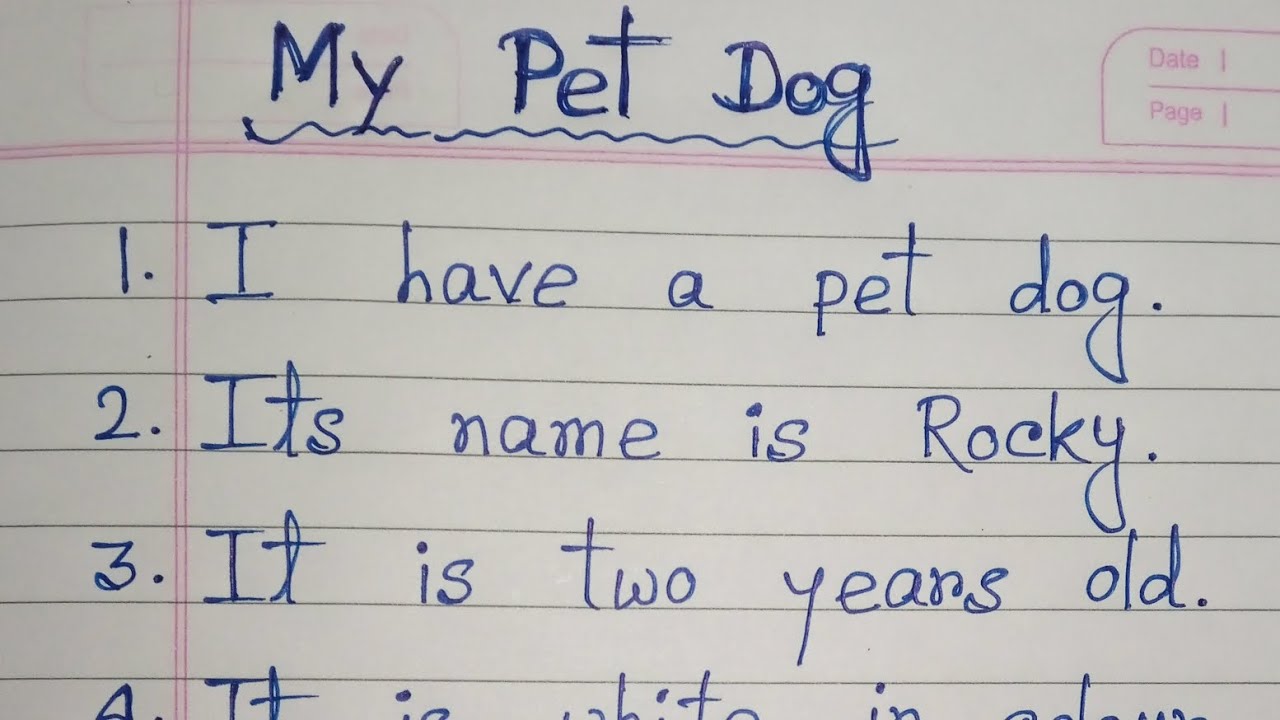 My Pet Dog
Date
Page
1. I have a pet dog.
2. Its name is Rocky.
3. It is two years old.
4. It is white in colour